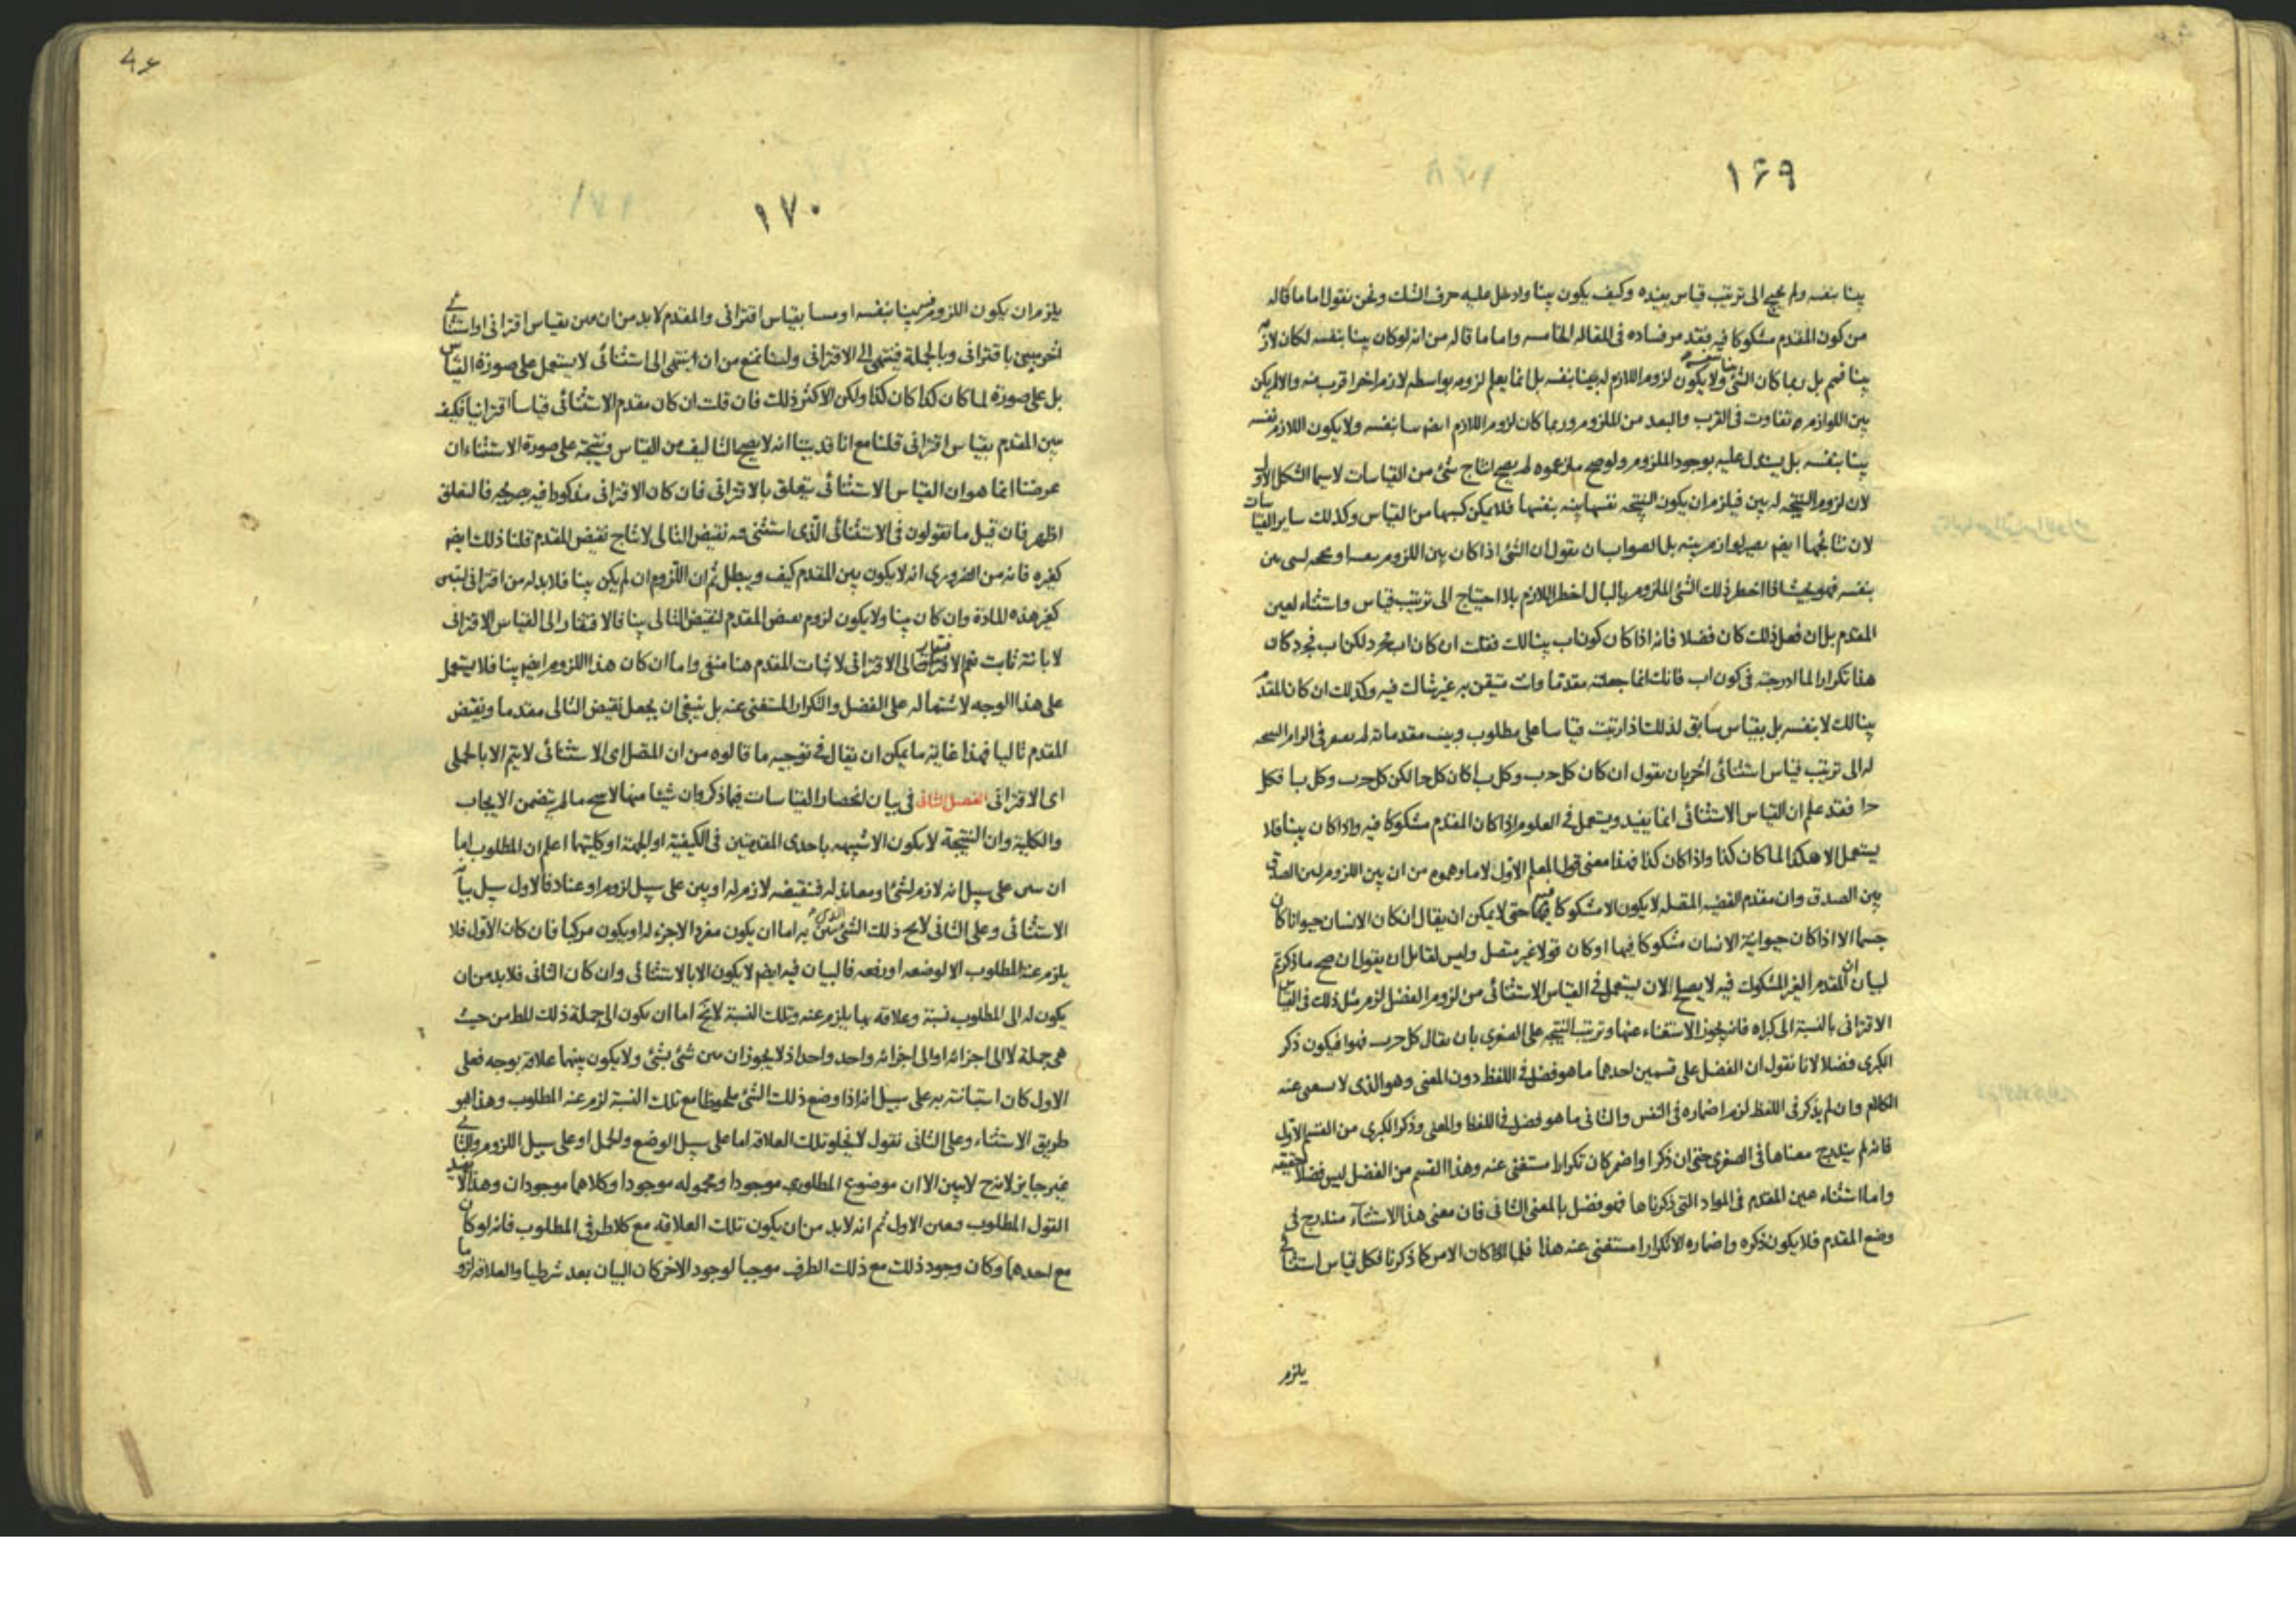 ١٦٩
بينا بنفسه ولم يحتج الى ترتيب قياس يفيده وكيف يكون بينا وادخل عليه حرف الشك ونحن نقول اما ما قاله
من كون المقدم مشكوكا فيه فقد مر فساده فى المقاله الخامسه واما ما قاله من انه لوكان بينا بنفسه لكان لازمه
بينا فهم بل ربما كان الشئ بينا بنفسه ولا يكون لزوم اللازم له بينا بنفسه بل انما يعلم لزومه بواسطه لازم اخر اقرب منه والا لم يكن
بين اللوازم تفاوت فى القرب والبعد من الملزوم وربما كان لزوم اللازم ايضم بنفسه ولا يكون اللازم نفسه
بينا بنفسه بل يستدل عليه بوجود الملزوم ولو صح ما زعموه لم يصح انتاج شئ من القياسات لا سيما الشكل الاول
لان لزوم النتيجه له بين فيلزم ان يكون النتيجه نفسها بينه بنفسها فلا يمكن كسبها من القياس وكذلك ساير القياسات
لان نتائجها ايضم لوازم بينه بل الصواب ان يقول ان الشئ اذا كان بين اللزوم
بنفسه فهو بحيث اذا اخطر ذلك الشئ الملزوم بالبال اخطر اللازم بلا احتياج الى ترتيب قياس واستثناء لعين
المقدم بل ان فعل ذلك كان فضلا فانه اذا كان كون اب بينا لك فقلت ان كان اب فجد لكن اب فجد كان
هذا تكرارا لما ادرجته فى كون اب فانك انما جعلته مقدما وانت متيقن به غير شاك فيه وكذلك ان كان المقدم
بينا لك لا بنفسه بل بقياس سابق لذلك اذا رتبت قياسا على مطلوب وبينت مقدماته لم
له الى ترتيب قياس استثنائى اخر بان نقول ان كان كل حب وكل با كان كل حا لكن كل حب وكل با فكل
حا فقد علم ان القياس الاستثنائى انما يفيد ويستعمل فى العلوم اذا كان المقدم مشكوكا فيه واذا كان بينا فلا
يستعمل الا هكذا لما كان كذا واذا كان كذا فهذا معنى قول المعلم الاول لا ما وهموه من ان بين اللزوم لبين الصدق
بين الصدق وان مقدم القضيه المتصله لا يكون الا مشكوكا فيه حتى لا يمكن ان يقال ان كان الانسان حيوانا كان
جسما الا اذا كان حيوانية الانسان مشكوكا فيها او كان قولا غير متصل وليس لقايل ان يقول ان صح ما ذكرتم
لبيان ان المقدم الغير المشكوك فيه لا يصلح لان يستعمل فى القياس الاستثنائى من لزوم الفضل لزم مثل ذلك فى القياس
الاقترانى بالنسبة الى كبراه فانه يجوز الاستغناء عنها وترتيب النتيجه على الصغرى بان يقال كل حب فهو ا فيكون ذكر
الكبرى فضلا لانا نقول ان الفضل على قسمين احدهما ما هو فضل فى اللفظ دون المعنى وهو الذى لا يستغنى عنه
الكلام وان لم يذكر فى اللفظ لزم اضماره فى النفس والثانى ما هو فضل فى اللفظ والمعنى وذكر الكبرى من القسم الاول
فانه لم يندرج معناها فى الصغرى حتى ان ذكرا واضمر كان تكرارا مستغنى عنه وهذا القسم من الفضل ليس فضلا حقيقه
واما استثناء عين المقدم فى المواد التى ذكرناها فهو فضل بالمعنى الثانى فان معنى هذا الاستثناء مندرج فى
وضع المقدم فلا يكون ذكره واضماره الا تكرارا مستغنى عنه هذا فلما كان الامر كما ذكرنا فكل قياس استثنائى
يلزم
١٧٠
يلزم ان يكون اللزوم فيه بينا بنفسه او مبينا بقياس اقترانى والمقدم لا بد من ان يبين بقياس اقترانى او استثنائى
اخر يبين باقترانى وبالجملة فينتهى الى الاقترانى ولسنا نمنع من ان ينتهى الى استثنائى لا يستعمل على صورة القياس
بل على صورة لما كان كذا كان كذا ولكن الاكثر ذلك فان قلت ان كان مقدم الاستثنائى قياسا اقترانيا فكيف
يبين المقدم بقياس اقترانى قلنا مع انا قد بينا انه لا يصح التاليف من القياس ونتيجته على صورة الاستثناء ان
غرضنا انما هو ان القياس الاستثنائى يتعلق بالاقترانى فان كان الاقترانى مذكورا فيه بصريحه فالتعلق
اظهر فان قيل ما تقولون فى الاستثنائى الذى استثنى فيه نقيض التالى لانتاج نقيض المقدم قلنا ذلك ايضم
كغيره فانه من الضرورى انه لا يكون بين المقدم كيف ويبطل ثم ان اللزوم ان لم يكن بينا فلا بد له من اقترانى ليبين
كغير هذه المادة وان كان بينا ولا يكون لزوم نقيض المقدم لنقيض التالى بينا فالافتقار الى القياس الاقترانى
لابانته ثابت نعم الافتقار الى الاقترانى لاثبات المقدم هنا منفى واما ان كان هذا اللزوم ايضم بينا فلا يستعمل
على هذا الوجه لاشتماله على الفضل والتكرار المستغنى عنه بل ينبغى ان يجعل نقيض التالى مقدما ونقيض
المقدم تاليا فهذا غاية ما يمكن ان يقال فى توجيه ما قالوه من ان المتصل اى الاستثنائى لا يتم الا بالحملى
اى الاقترانى الفصل الثانى فى بيان انحصار القياسات فيما ذكر وان شيئا منها لا ينتج ما لم يتضمن الايجاب
والكلية وان النتيجة لا يكون الا شبيهه باحدى المقدمتين فى الكيفية او الجهة او كليتهما اعلم ان المطلوب اما
ان يبين على سبيل انه لازم لشئ او معاند له فنقيضه لازم له او يبين على سبيل لزوم او عناد فالاول سبيل بيانه
الاستثنائى وعلى الثانى لا يخ ذلك الشئ الذى يبين به اما ان يكون مفردا لا جزء له او يكون مركبا فان كان الاول فلا
يلزم عنه المطلوب الا لوضعه او رفعه فالبيان فيه ايضم لا يكون الا بالاستثنائى وان كان الثانى فلا بد من ان
يكون له الى المطلوب نسبة وعلاقه بها يلزم عنه وتلك النسبة لا يخ اما ان يكون الى جملة ذلك المط من حيث
هى جملة لا الى اجزائه او الى اجزائه واحد واحد اذ لا يجوز ان يبين شئ بشئ ولا يكون بينهما علاقة بوجه فعلى
الاول كان استبانته به على سبيل انه اذا وضع ذلك الشئ ملحوظا مع تلك النسبة لزم عنه المطلوب وهذا هو
طريق الاستثناء وعلى الثانى نقول لا يخلو تلك العلاقه اما على سبيل الوضع والحمل او على سبيل اللزوم والثانى
غير جايز لانه ح لا يبين الا ان موضوع المطلوب موجود او محموله موجود او كلاهما موجودان وهذا لا يفيد
القول المطلوب فبين الاول ثم انه لا بد من ان يكون تلك العلاقه مع كلا طرفى المطلوب فانه لو كان
مع احدهما وكان وجود ذلك مع ذلك الطرف موجبا لوجود الاخر كان البيان بعد شرطيا والعلاقه لزوما